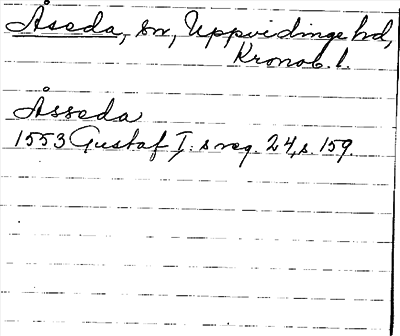 Åseda, sn, Uppvidinge hd,
Kronob. l.
Åsseda
1553 Gustaf I:s reg. 24, s. 159.